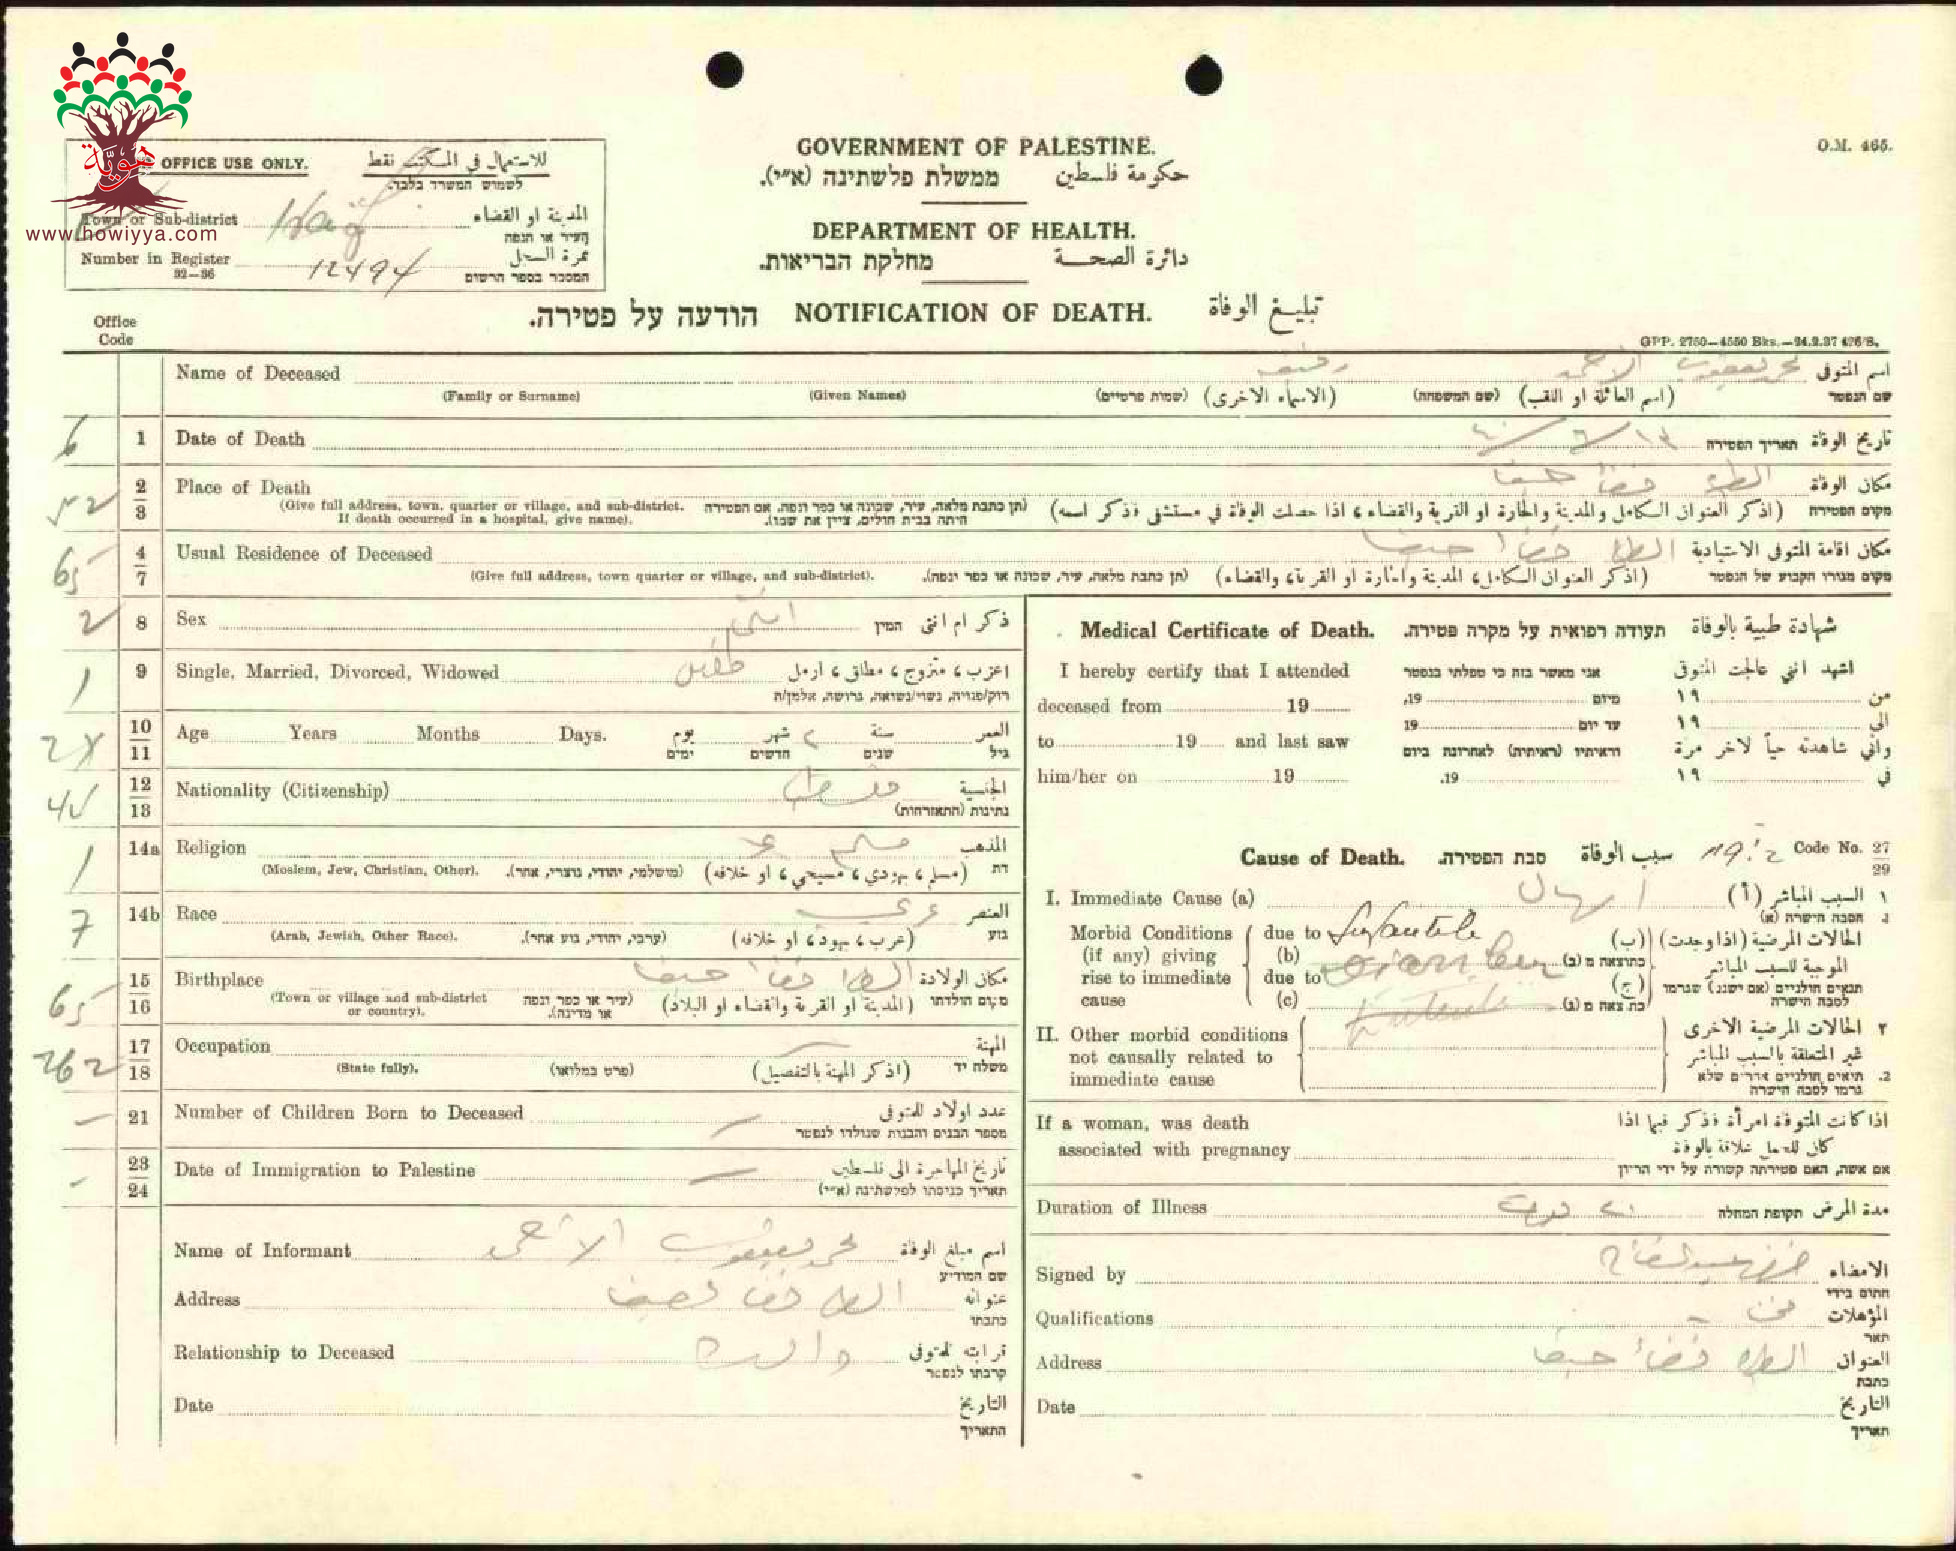 GOVERNMENT OF PALESTINE.
حكومة فلسطين ממשלת פלשתינה (א״י).
DEPARTMENT OF HEALTH.
دائرة الصحة מחלקת הבריאות.
تبليغ الوفاة NOTIFICATION OF DEATH. הודעה על פטירה.
O.M. 465.
GPP. 2750—4550 Bks.—24.2.37 426/S.
هويّة
www.howiyya.com
OFFICE USE ONLY. للاستعمال في المكتب فقط
לשמוש המשרד בלבד.
Town or Sub-district Haifa المدينة او القضاء
העיר או הנפה
Number in Register 12494 نمرة السجل
92—96 המספר בספר הרשום
Office
Code
Name of Deceased محمد يعقوب الاحمد اسم المتوفى
(Family or Surname) (Given Names) (שמות פרטיים) (الاسماء الاخرى) (שם המשפחה) (اسم العائلة او اللقب) שם הנפטר
6 1 Date of Death תאריך הפטירה تاريخ الوفاة
52 2 3 Place of Death الطيرة قضاء حيفا مكان الوفاة
(Give full address, town, quarter or village, and sub-district.
If death occurred in a hospital, give name).
(תן כתבת מלאה, עיר, שכונה או כפר ונפה. אם הפטירה
היתה בבית חולים, ציין את שמו).
(اذكر العنوان الكامل والمدينة والحارة او القرية والقضاء، اذا حصلت الوفاة في مستشفى فذكر اسمه) מקום הפטירה
65 4 7 Usual Residence of Deceased الطيرة قضاء حيفا مكان اقامة المتوفى الاعتيادية
(Give full address, town quarter or village, and sub-district). (תן כתבת מלאה, עיר, שכונה או כפר ונפה). (اذكر العنوان الكامل، المدينة والحارة او القرية، والقضاء) מקום מגוריו הקבוע של הנפטר
2 8 Sex انثى המין ذكر ام انثى
1 9 Single, Married, Divorced, Widowed طفل اعزب، متزوج، مطلق، ارمل
רווק/פנויה, נשוי/נשואה, גרושה, אלמן/ה
10 11 Age Years Months Days. يوم شهر ٢ سنة العمر
ימים חדשים שנים גיל
12 13 Nationality (Citizenship) الجنسية
נתינות (התאזרחות)
1 14a Religion مسلم المذهب
(Moslem, Jew, Christian, Other). (מושלמי, יהודי, נוצרי, אחר). (مسلم، يهودي، مسيحي، او خلافه) דת
7 14b Race عربي العنصر
(Arab, Jewish, Other Race). (ערבי, יהודי, גזע אחר). (عرب، يهود، او خلافه) גזע
65 15 16 Birthplace الطيرة قضاء حيفا مكان الولادة
(Town or village and sub-district
or country).
(עיר או כפר ונפה
או מדינה).
(المدينة او القرية والقضاء او البلاد) מקום הולדתו
262 17 18 Occupation المهنة
(State fully). (פרט במלואו) (اذكر المهنة بالتفصيل) משלח יד
21 Number of Children Born to Deceased عدد اولاد المتوفى
מספר הבנים והבנות שנולדו לנפטר
23 24 Date of Immigration to Palestine تاريخ المهاجرة الى فلسطين
תאריך כניסתו לפלשתינה (א״י)
Name of Informant محمد يعقوب الاحمد اسم مبلغ الوفاة
שם המודיע
Address الطيرة قضاء حيفا عنوانه
כתבתו
Relationship to Deceased والده قرابته للمتوفى
קרבתו לנפטר
Date التاريخ
התאריך
Medical Certificate of Death. תעודה רפואית על מקרה פטירה. شهادة طبية بالوفاة
I hereby certify that I attended אני מאשר בזה כי טפלתי בנפטר اشهد انني عالجت المتوفى
deceased from 19 19, מיום ١٩ من
to 19 and last saw 19 עד יום ١٩ الى
וראיתיו (ראיתיה) לאחרונה ביום واني شاهدته حياً لآخر مرة
him/her on 19 19. ١٩ في
Cause of Death. סבת הפטירה. سبب الوفاة Code No. 27 29
I. Immediate Cause (a) اسهال السبب المباشر (أ) ١
הסבה הישרה (א) .1
Morbid Conditions due to Infantile الحالات المرضية (اذا وجدت) (ب)
(if any) giving (b) כתוצאה מ (ב) الموجبة للسبب المباشر
rise to immediate due to (ج) תנאים חולניים (אם ישנם) שגרמו
cause (c) כתוצאה מ (ג) לסבה הישרה
II. Other morbid conditions الحالات المرضية الاخرى ٢
not causally related to غير المتعلقة بالسبب المباشر
immediate cause תנאים חולניים אחרים שלא .2
גרמו לסבה הישרה
If a woman, was death اذا كانت المتوفاة امرأة فذكر فيما اذا
associated with pregnancy كان للحمل علاقة بالوفاة
אם אשה, האם פטירתה קשורה על ידי הריון
Duration of Illness תקופת המחלה مدة المرض
Signed by الامضاء
חתום בידי
Qualifications المؤهلات
תאר
Address الطيرة قضاء حيفا العنوان
כתבת
Date التاريخ
תאריך